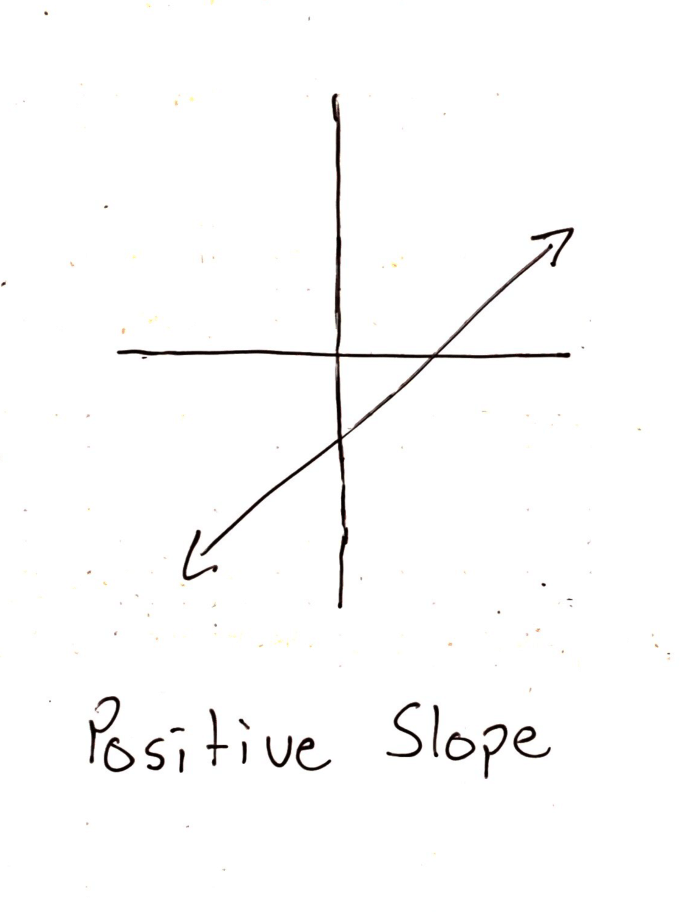 Positive Slope